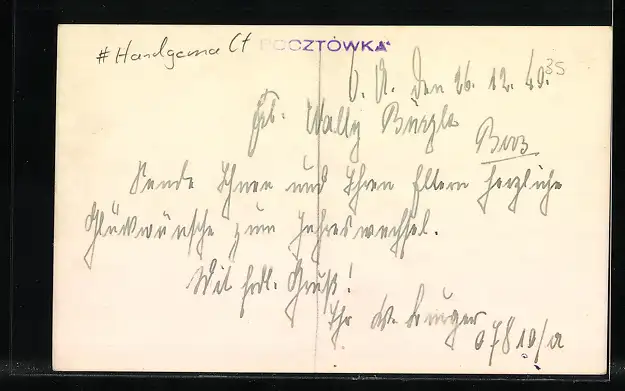 #Handgemalt POCZTÓWKA
O. U. den 26. 12. 40.
35
Frl. Wally Bürgle
Sende Ihnen und Ihren Eltern herzliche
Glückwünsche zum Jahreswechsel.
Mit frdl. Gruß!
Ihr W.
07810/a